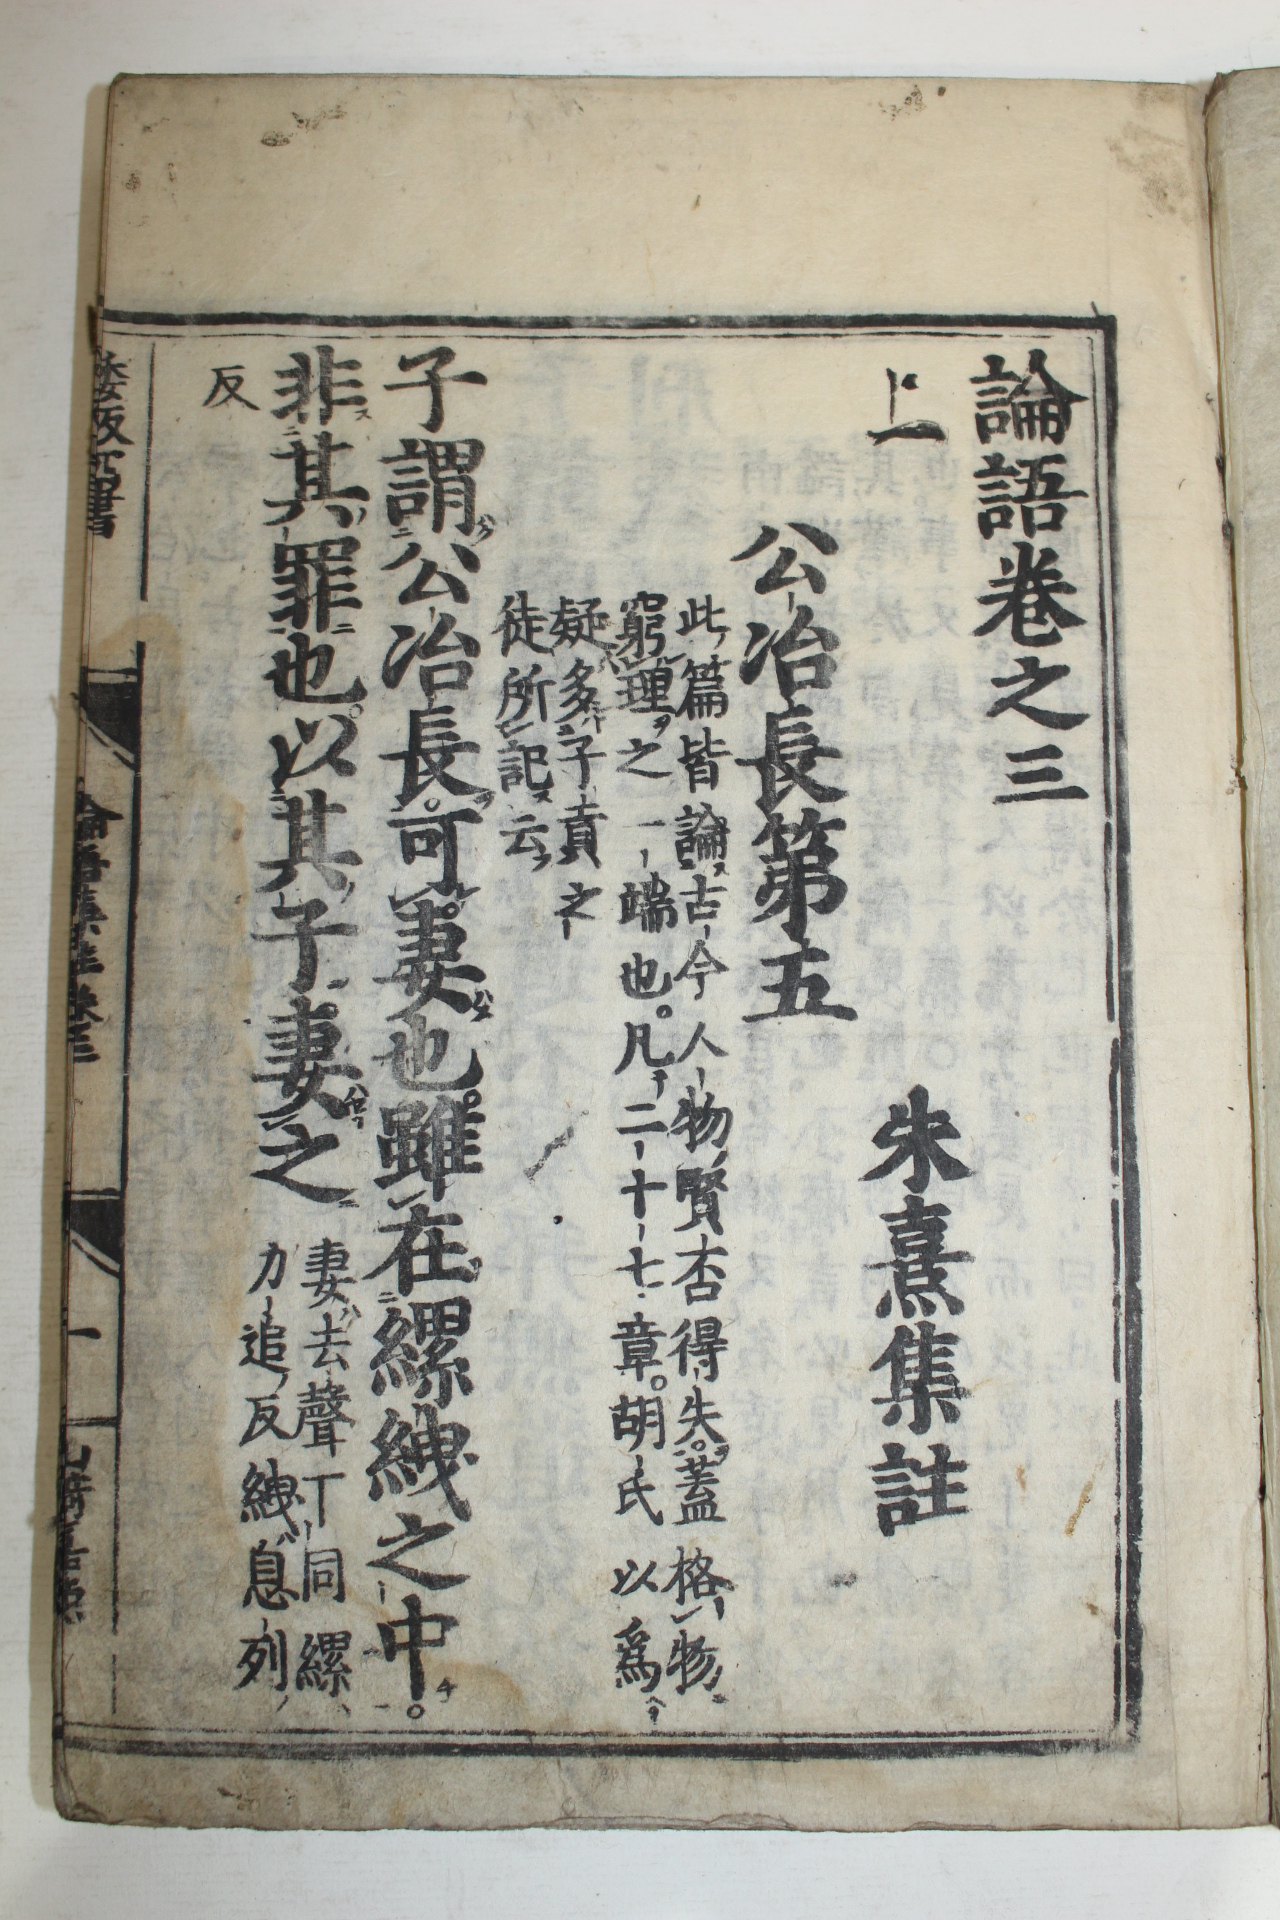 論語卷之三
上
朱熹集註
公冶長第五
此篇皆論古今人物賢否得失。蓋格物
窮理之一端也。凡二十七章。胡氏以爲
疑多子貢之
徒所記云
子謂公冶長。可妻也。雖在縲絏之中。
非其罪也。以其子妻之
妻去聲下同縲
力追反絏息列
反
論語集註卷三
一